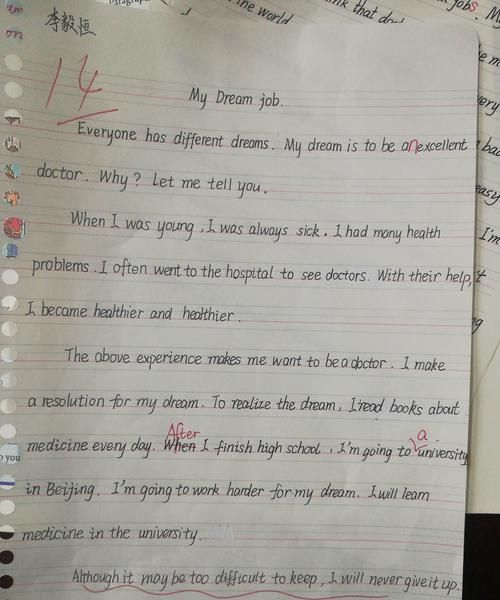 the world
think that
jobs. My
李毅恒
14
My Dream job.
Everyone has different dreams. My dream is to be an excellent
doctor. Why? Let me tell you.
When I was young, I was always sick. I had many health
problems. I often went to the hospital to see doctors. With their help,
I became healthier and healthier.
The above experience makes me want to be a doctor. I make
a resolution for my dream. To realize the dream, I read books about
After
a
medicine every day. When I finish high school, I'm going to university
in Beijing. I'm going to work harder for my dream. I will learn
medicine in the university.
Although it may be too difficult to keep, I will never give it up.
on
you
I'm